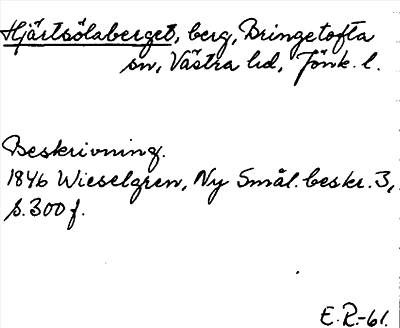 Hjärtsölaberget, berg, Bringetofta
sn, Västra hd, Jönk. l.
Beskrivning.
1846 Wieselgren, Ny Smål. beskr. 3,
s. 300 f.
E.R.-61.